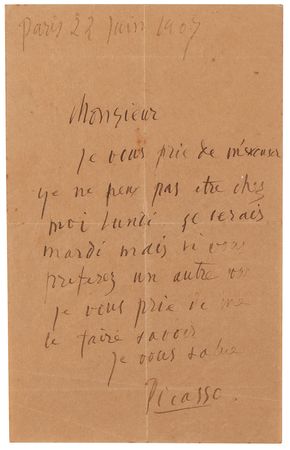 Paris 22 Juin 1907
Monsieur
Je vous prie de m'escuser
je ne peux pas etre chez
moi lundi je serais
mardi mais si vous
preferez un autre
je vous prie de me
le faire savoir
je vous salue
Picasso